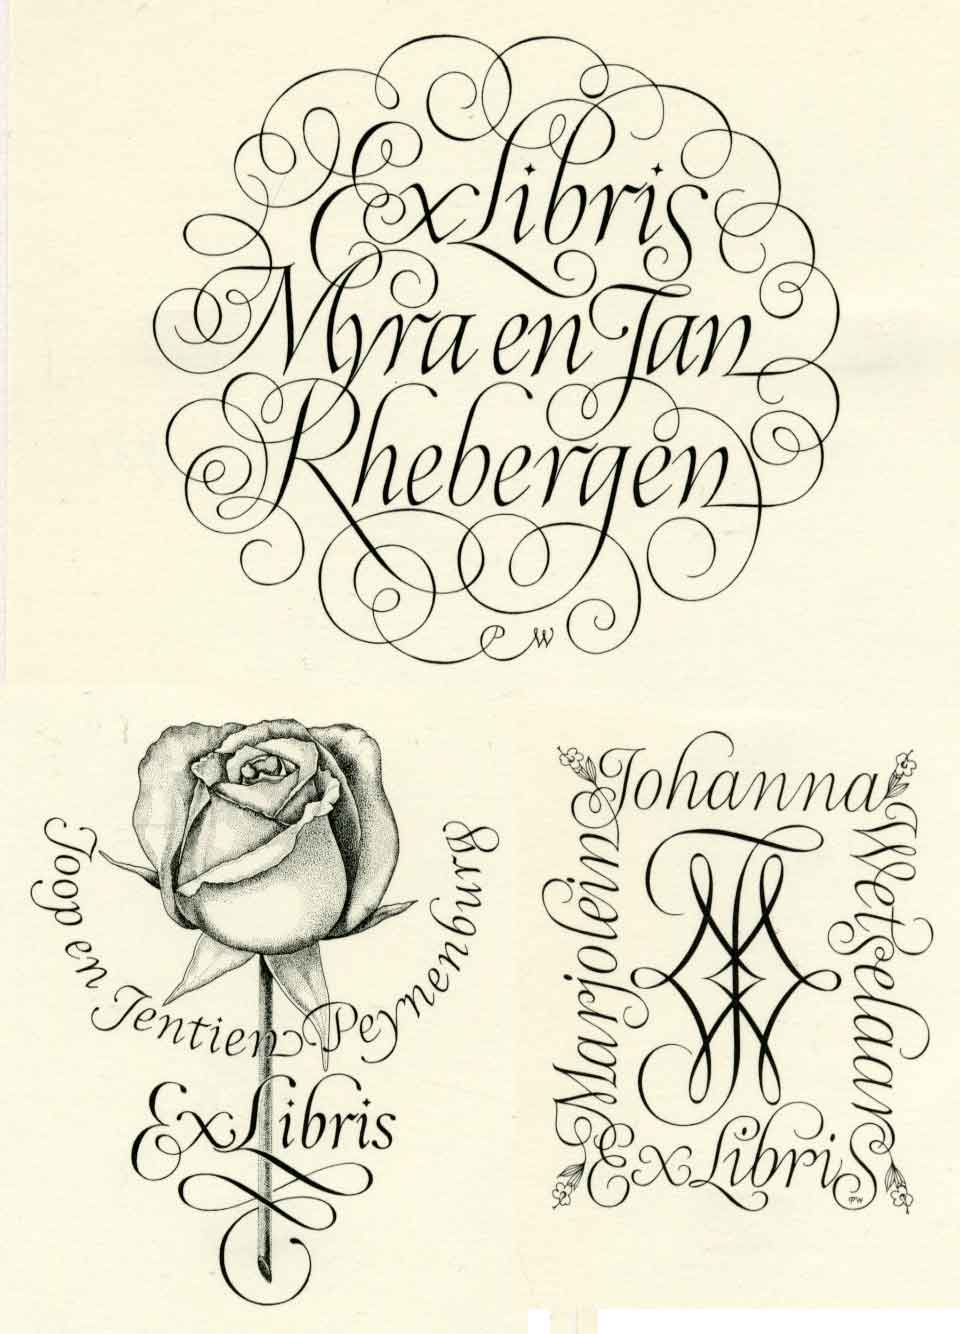 Ex Libris
Myra en Jan
Rhebergen
P W
Joop en Jentien Peynenburg
Ex Libris
Marjolein
Johanna
Wetselaar
Ex Libris
PW